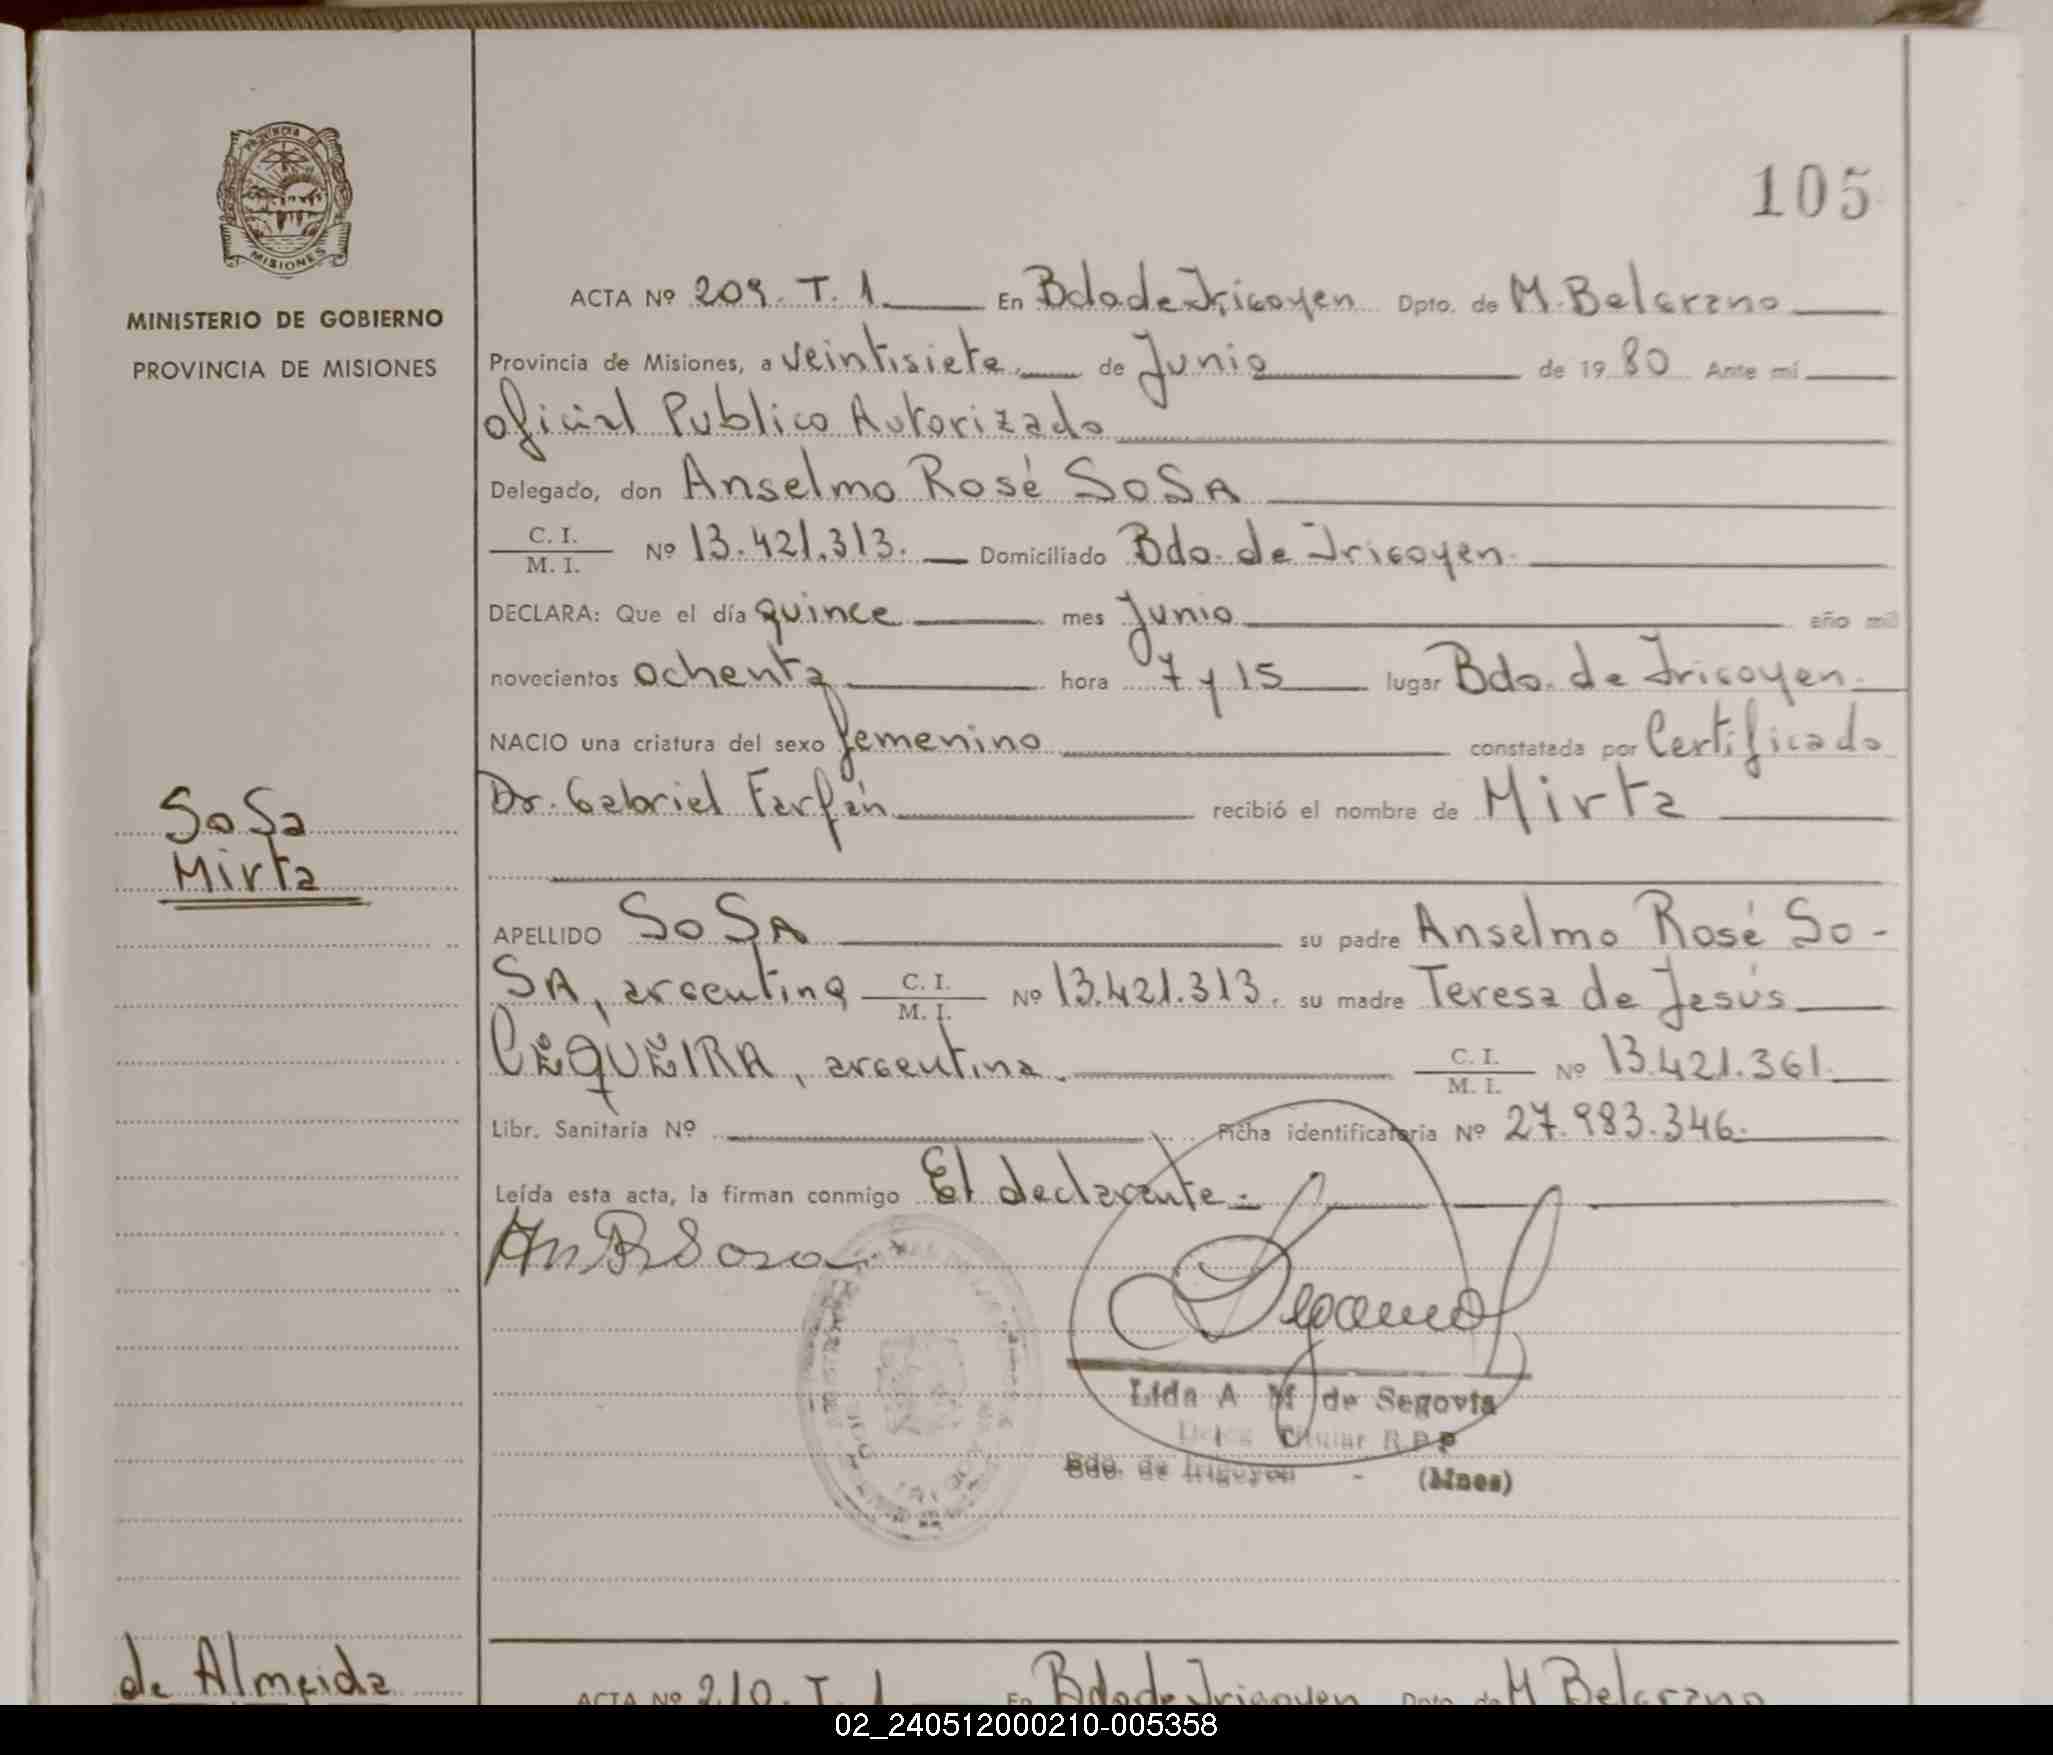 PROVINCIA DE
MISIONES
MINISTERIO DE GOBIERNO
PROVINCIA DE MISIONES
105
ACTA Nº 209. T. 1 En Bdo de Irigoyen Dpto. de M. Belgrano
Provincia de Misiones, a veintisiete de Junio de 1980 Ante mí
oficial Publico Autorizado
Delegado, don Anselmo Rosé SoSA
C. I. / M. I. Nº 13.421.313. Domiciliado Bdo. de Irigoyen.
DECLARA: Que el día quince mes Junio año mil
novecientos ochenta hora 7 y 15 lugar Bdo. de Irigoyen.
NACIO una criatura del sexo femenino constatada por Certificado
Dr. Gabriel Farfán recibió el nombre de Mirta
SoSa
Mirta
APELLIDO SoSA su padre Anselmo Rosé So-
SA, argentino C. I. / M. I. Nº 13.421.313. su madre Teresa de Jesús
CEQUEIRA, argentina. C. I. / M. I. Nº 13.421.361.
Libr. Sanitaria Nº Ficha identificatoria Nº 27.983.346.
Leída esta acta, la firman conmigo El declarante.
Sosa
Lida A M de Segovia
Titular R P P
Bdo. de Irigoyen - (Mnes)
de Almeida
ACTA Nº 210. T. 1 En Bdo de Irigoyen Dpto. de M Belgrano
02_240512000210-005358